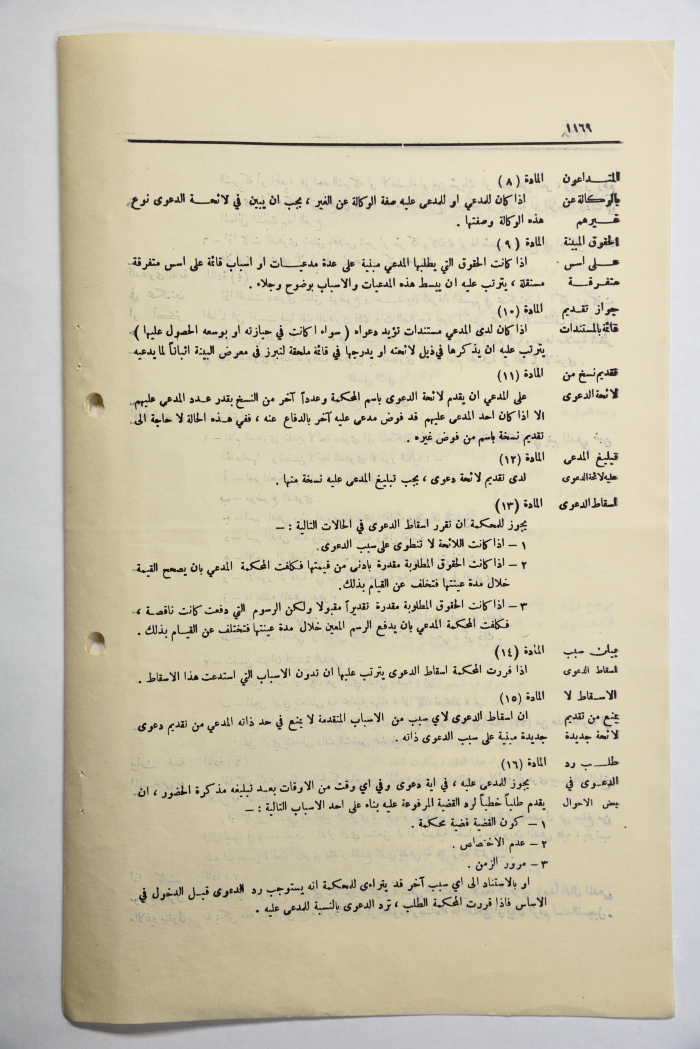 ١١٦٩
المتداعون المادة (٨)
بالوكالة عن اذا كان للمدعي او للمدعى عليه صفة الوكالة عن الغير ، يجب ان يبين في لائحة الدعوى نوع
غيرهم هذه الوكالة وصفتها .
الحقوق المبينة المادة (٩)
على اسس اذا كانت الحقوق التي يطلبها المدعي مبنية على عدة مدعيات او اسباب قائمة على اسس متفرقة
متفرقة مستقلة ، يترتب عليه ان يبسط هذه المدعيات والاسباب بوضوح وجلاء .
جواز تقديم المادة (١٠)
قائمة بالمستندات اذا كان لدى المدعي مستندات تؤيد دعواه ( سواء اكانت في حيازته او بوسعه الحصول عليها )
يترتب عليه ان يذكرها في ذيل لائحته او يدرجها في قائمة ملحقة لتبرز في معرض البينة اثباتاً لما يدعيه
تقديم نسخ من المادة (١١)
لائحة الدعوى على المدعي ان يقدم لائحة الدعوى باسم المحكمة وعدداً آخر من النسخ بقدر عدد المدعى عليهم
الا اذا كان احد المدعى عليهم قد فوض مدعى عليه آخر بالدفاع عنه ، ففي هذه الحالة لا حاجة الى
تقديم نسخة باسم من فوض غيره .
تبليغ المدعى المادة (١٢)
عليه لائحة الدعوى لدى تقديم لائحة دعوى ، يجب تبليغ المدعى عليه نسخة منها .
اسقاط الدعوى المادة (١٣)
يجوز للمحكمة ان تقرر اسقاط الدعوى في الحالات التالية : —
١ – اذا كانت اللائحة لا تنطوي على سبب الدعوى .
٢ – اذا كانت الحقوق المطلوبة مقدرة بادنى من قيمتها فكلفت المحكمة المدعي بان يصحح القيمة
خلال مدة عينتها فتخلف عن القيام بذلك .
٣ – اذا كانت الحقوق المطلوبة مقدرة تقديراً مقبولا ولكن الرسوم التي دفعت كانت ناقصة ،
فكلفت المحكمة المدعي بان يدفع الرسم المعين خلال مدة عينتها فتختلف عن القيام بذلك .
بيان سبب المادة (١٤)
اسقاط الدعوى اذا قررت المحكمة اسقاط الدعوى يترتب عليها ان تدون الاسباب التي استدعت هذا الاسقاط .
الاسقاط لا المادة (١٥)
يمنع من تقديم ان اسقاط الدعوى لاي سبب من الاسباب المتقدمة لا يمنع في حد ذاته المدعي من تقديم دعوى
لائحة جديدة جديدة مبنية على سبب الدعوى ذاته .
طلب رد المادة (١٦)
الدعوى في يجوز للمدعى عليه ، في اية دعوى وفي اي وقت من الاوقات بعد تبليغه مذكرة الحضور ، ان
بعض الاحوال يقدم طلباً خطياً لرد القضية المرفوعة عليه بناء على احد الاسباب التالية : —
١ – كون القضية قضية محكمة .
٢ – عدم الاختصاص .
٣ – مرور الزمن .
او بالاستناد الى اي سبب آخر قد يتراءى للمحكمة انه يستوجب رد الدعوى قبل الدخول في
الاساس فاذا قررت المحكمة الطلب ، ترد الدعوى بالنسبة للمدعى عليه .